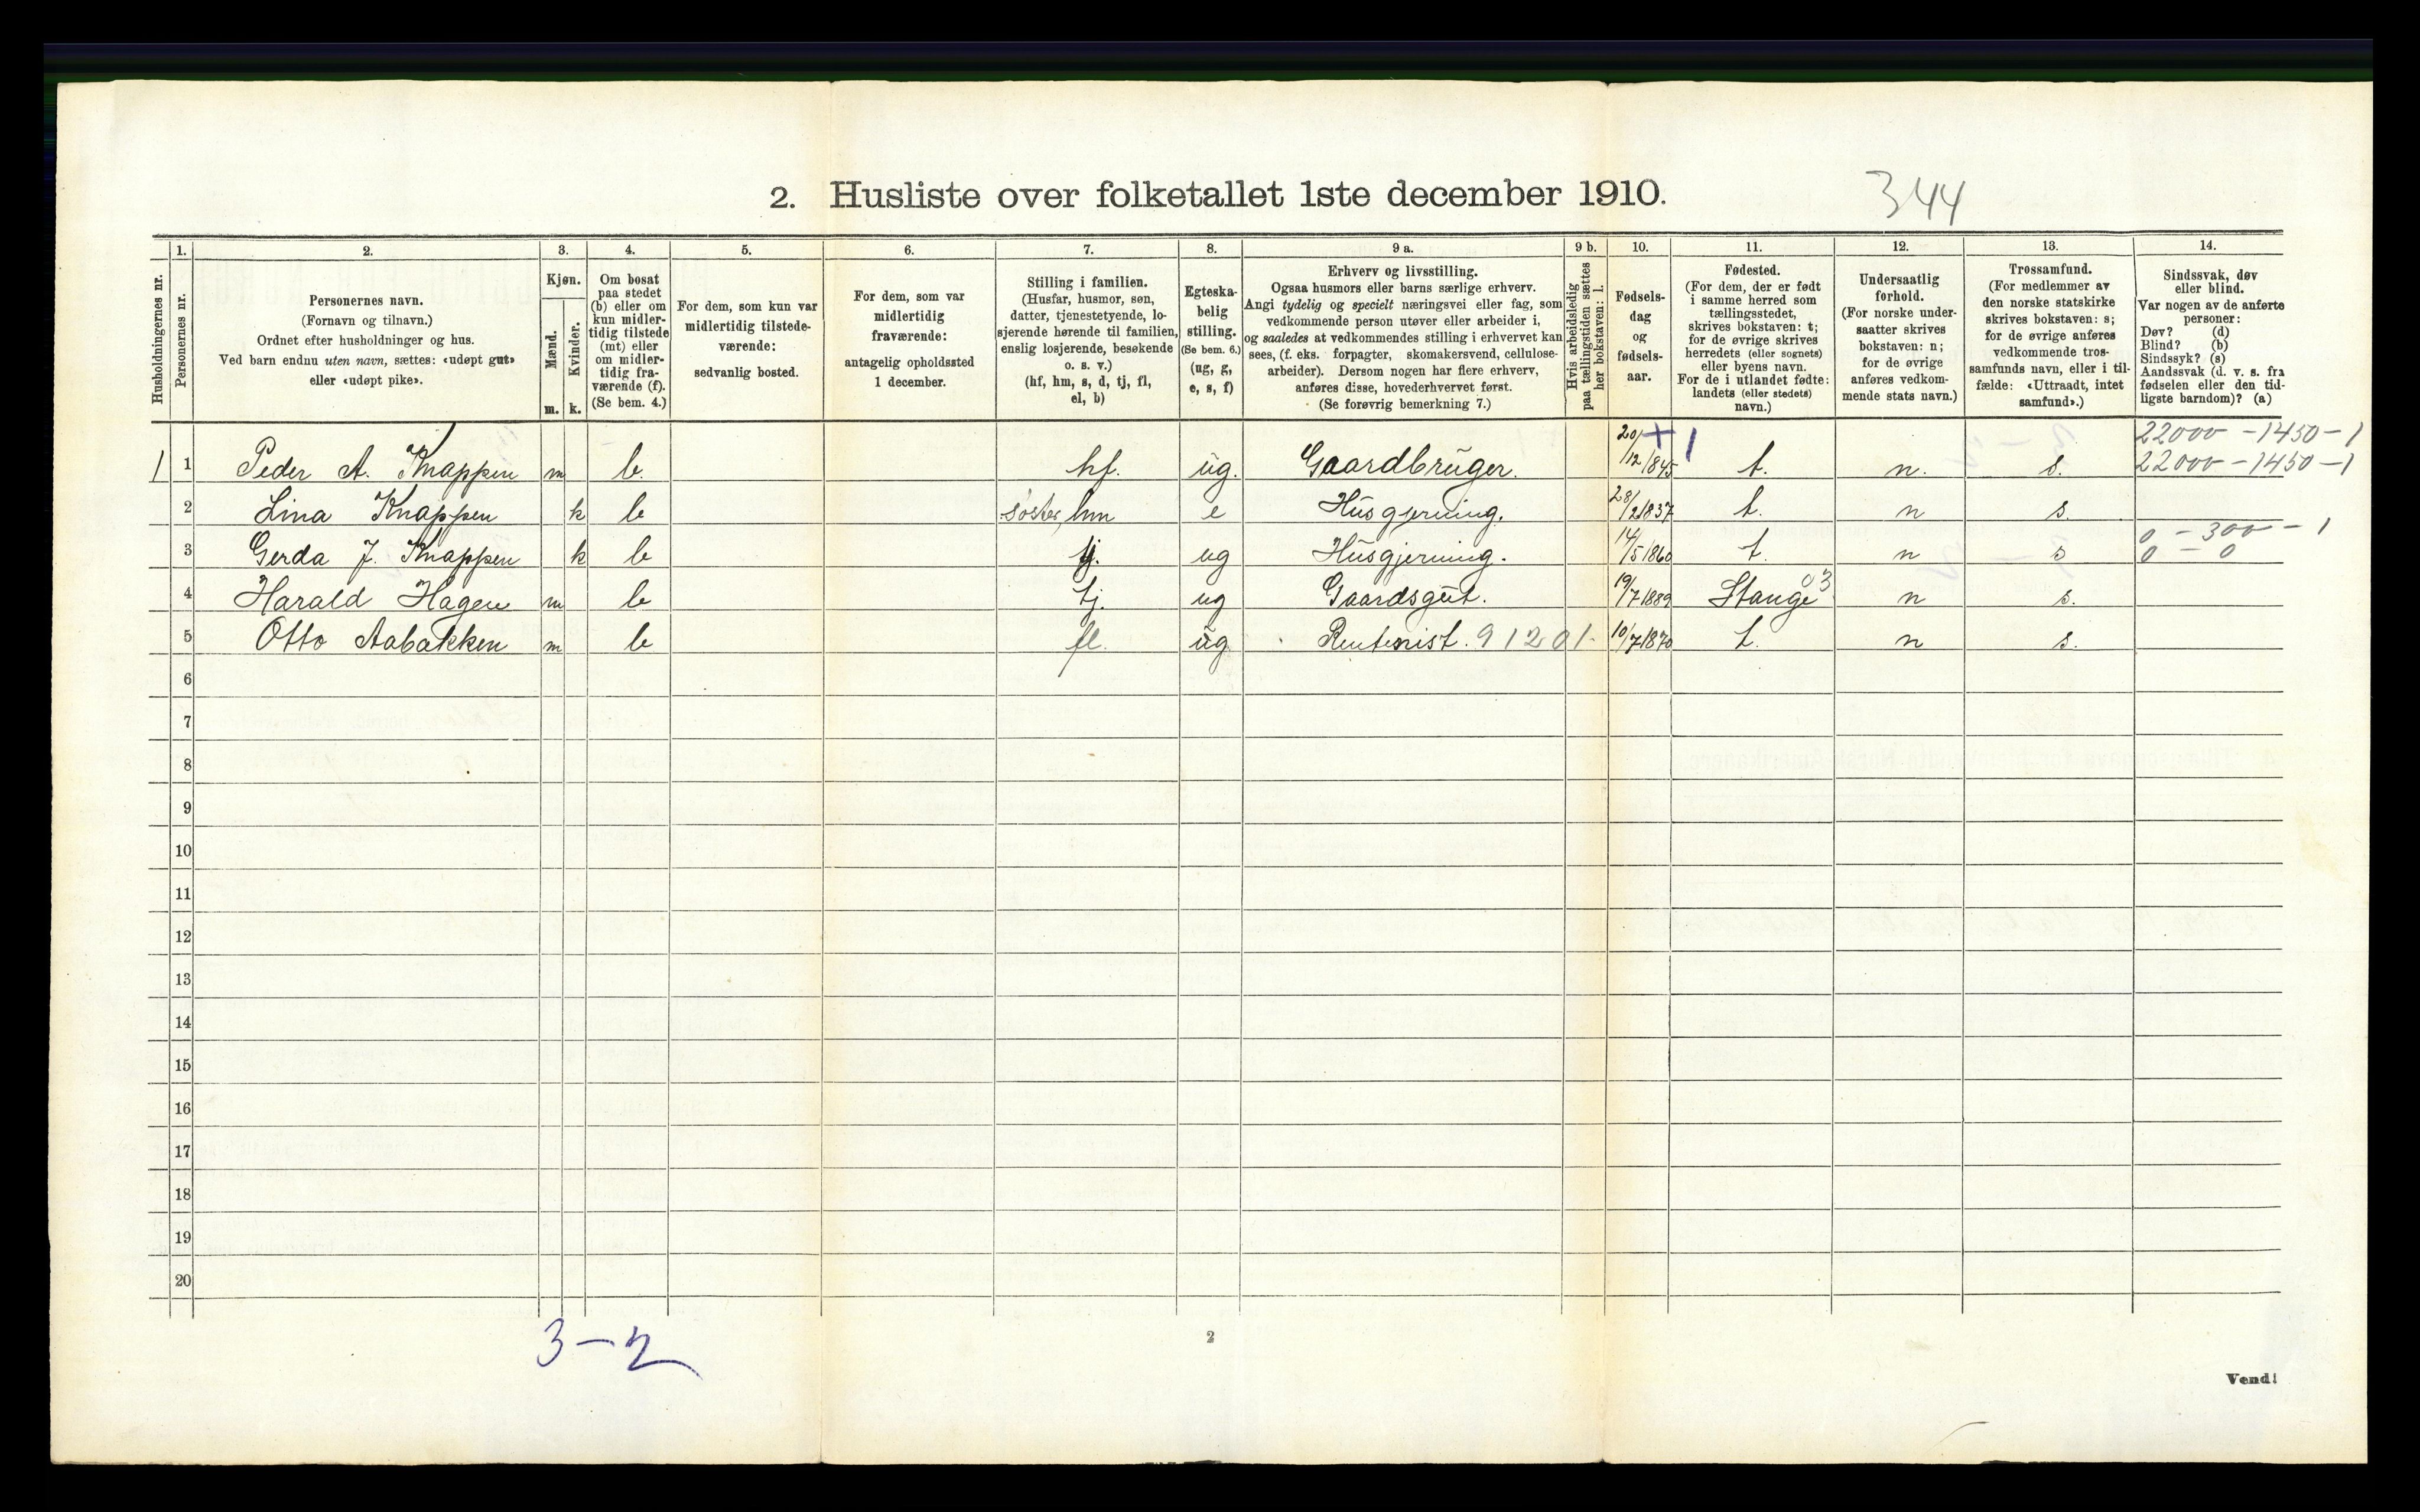 2. Husliste over folketallet 1ste december 1910.
344
Husholdningernes nr.
1.
Personernes nr.
2.
Personernes navn.
(Fornavn og tilnavn.)
Ordnet efter husholdninger og hus.
Ved barn endnu uten navn, sættes: «udøpt gut»
eller «udøpt pike».
3.
Kjøn.
Mænd.
Kvinder.
m. k.
4.
Om bosat
paa stedet
(b) eller om
kun midler-
tidig tilstede
(mt) eller
om midler-
tidig fra-
værende (f).
(Se bem. 4.)
5.
For dem, som kun var
midlertidig tilstede-
værende:
sedvanlig bosted.
6.
For dem, som var
midlertidig
fraværende:
antagelig opholdssted
1 december.
7.
Stilling i familien.
(Husfar, husmor, søn,
datter, tjenestetyende, lo-
sjerende hørende til familien,
enslig losjerende, besøkende
o. s. v.)
(hf, hm, s, d, tj, fl,
el, b)
8.
Egteska-
belig
stilling.
(Se bem. 6.)
(ug, g,
e, s, f)
9 a.
Erhverv og livsstilling.
Ogsaa husmors eller barns særlige erhverv.
Angi tydelig og specielt næringsvei eller fag, som
vedkommende person utøver eller arbeider i,
og saaledes at vedkommendes stilling i erhvervet kan
sees, (f. eks. forpagter, skomakersvend, cellulose-
arbeider). Dersom nogen har flere erhverv,
anføres disse, hovederhvervet først.
(Se forøvrig bemerkning 7.)
9 b.
Hvis arbeidsledig
paa tællingstiden sættes
her bokstaven: l.
10.
Fødsels-
dag
og
fødsels-
aar.
11.
Fødested.
(For dem, der er født
i samme herred som
tællingsstedet,
skrives bokstaven: t;
for de øvrige skrives
herredets (eller sognets)
eller byens navn.
For de i utlandet fødte:
landets (eller stedets)
navn.)
12.
Undersaatlig
forhold.
(For norske under-
saatter skrives
bokstaven: n;
for de øvrige
anføres vedkom-
mende stats navn.)
13.
Trossamfund.
(For medlemmer av
den norske statskirke
skrives bokstaven: s;
for de øvrige anføres
vedkommende tros-
samfunds navn, eller i til-
fælde: «Uttraadt, intet
samfund».)
14.
Sindssvak, døv
eller blind.
Var nogen av de anførte
personer:
Døv? (d)
Blind? (b)
Sindssyk? (s)
Aandssvak (d. v. s. fra
fødselen eller den tid-
ligste barndom)? (a)
22000 - 1450 - 1
1 1 Peder A. Knappen m b. hf. ug. Gaardbruger. 20/12 1845 + 1 t. n. s. 22000 - 1450 - 1
2 Lina Knappen k b søster hm e Husgjerning. 28/2 1837 t. n s.
0 - 300 - 1
3 Gerda J. Knappen k b tj. ug Husgjerning. 14/5 1860 t. n s 0 - 0
4 Harald Hagen m b tj. ug Gaardsgut. 19/7 1889 Stange 03 n s.
5 Otto Aabakken m b fl. ug Rentenist. 91201. 10/7 1870 t. n s.
6
7
8
9
10
11
12
13
14
15
16
17
18
19
20
3 - 2
2
Vend!